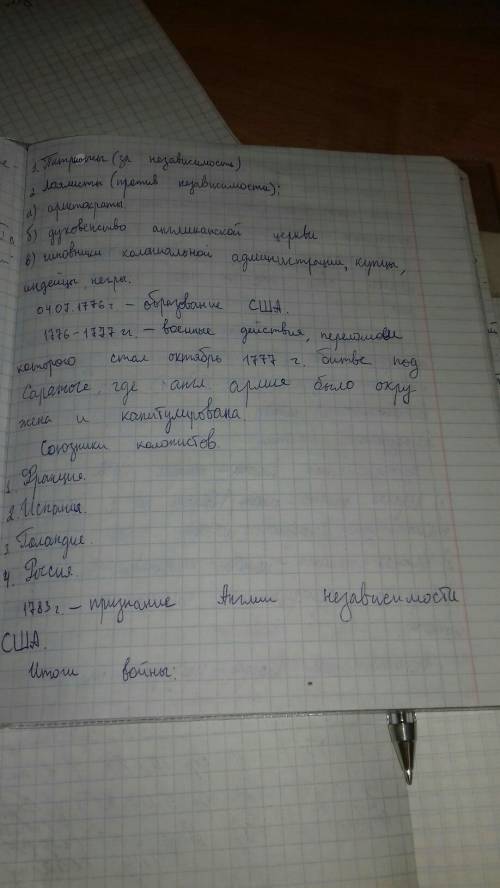 1. Патриоты (за независимость)
2 лоялисты (против независимости);
а) аристократы.
б) духовенство англиканской церкви
в) чиновники колониальной администрации, купцы,
индейцы, негры.
04.07.1776 г. – образование США.
1776-1777 гг. – военные действия, переломом
которого стал октябрь 1777 г. битве под
Саратоге, где англ. армия было окру
жена и капитулирована.
Союзники колонистов.
1. Франция.
2. Испания.
3 Голандия.
4. Россия.
1783 г. – признание Англии независимости
США.
Итоги войны: